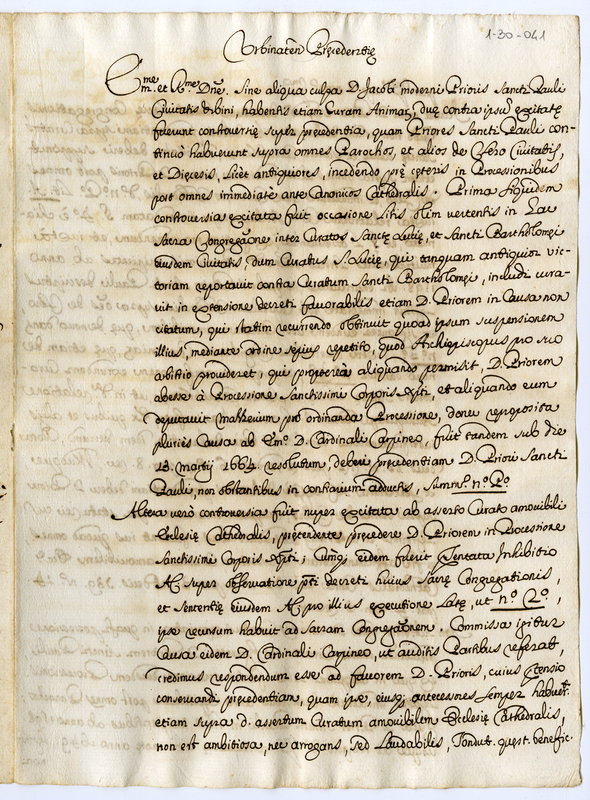 1-30-041
Urbinaten Precedentię
Emme. et Rme. Dne. Sine aliqua culpa D. Jacobi moderni Prioris Sancti Pauli
Civitatis Urbini, habentis etiam Curam Animar, duę contra ipsũ excitatę
fuerunt controversię super precedentia, quam Priores Sancti Pauli con-
tinuò habuerunt supra omnes Parochos, et alios de Clero Civitatis,
et Diecesis, licèt antiquiores, incedendo prę ceteris in Processionibus
post omnes immediatè ante Canonicos Cathedralis. Prima siquidem
controversia excitata fuit occasione litis olim vertentis in hac
Sacra Congregãone inter Curatos Sanctę Lucię, et Sancti Bartholomęi
eiusdem Civitatis, dum Curatus S. Lucię, qui tanquam antiquior vic-
toriam reportavit contra Curatum Sancti Bartholomęi, includi cura-
vit in extensione decreti favorabilis etiam D. Priorem in Causa non
citatum, qui statim recurrendo obtinuit quoad ipsum suspensionem
illius, mediante ordine sepius repetito, quod Archiepiscopus pro suo
arbitrio provideret, qui propterea aliquando permisit, D. Priorem
abesse à Processione Sanctissimi Corporis Xpti, et aliquando eum
deputavit pro ordinanda Processione, donec reproposita
pluries Causa ab Emo. D. Cardinali Carpineo, fuit tandem sub die
13. Martij 1664. resolutum, deberi precedentiam D. Priori Sancti
Pauli, non obstantibus in contrarium adductis, Summ.
Altera verò controversia fuit nuper excitata ab asserto Curato amovibili
Ecclesię Cathedralis, pretendente precedere D. Priorem in Processione
Sanctissimi Corporis Xpti; eidem fuerit Inhibitio
AC. super observatione decreti huius Sacrę Congregationis,
et Sententię eiusdem AC. pro illius executione Latę, ut nº. 2º.,
ipse recursum habuit ad Sacram Congregãonem. Commissa igitur
Causa eidem D. Cardinali Carpineo, ut auditis Partibus referat,
credimus respondendum esse ad favorem D. Prioris, cuius
conservandi precedentiam, quam ipse, eiusq; antecessores semper habuer.
etiam supra d. assertum Curatum amovibilem Ecclesię Cathedralis,
non est ambitiosa, nec arrogans, sed laudabilis, Tondut. quest. benefic.